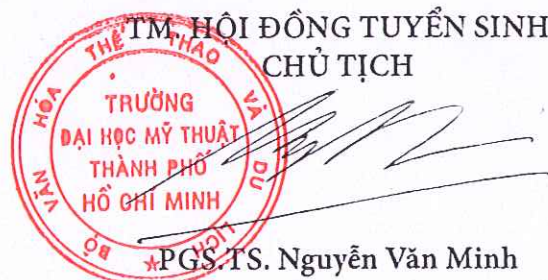 TM. HỘI ĐỒNG TUYỂN SINH
CHỦ TỊCH
BỘ VĂN HÓA THỂ THAO VÀ DU LỊCH
TRƯỜNG
ĐẠI HỌC MỸ THUẬT
THÀNH PHỐ
HỒ CHÍ MINH
PGS.TS. Nguyễn Văn Minh